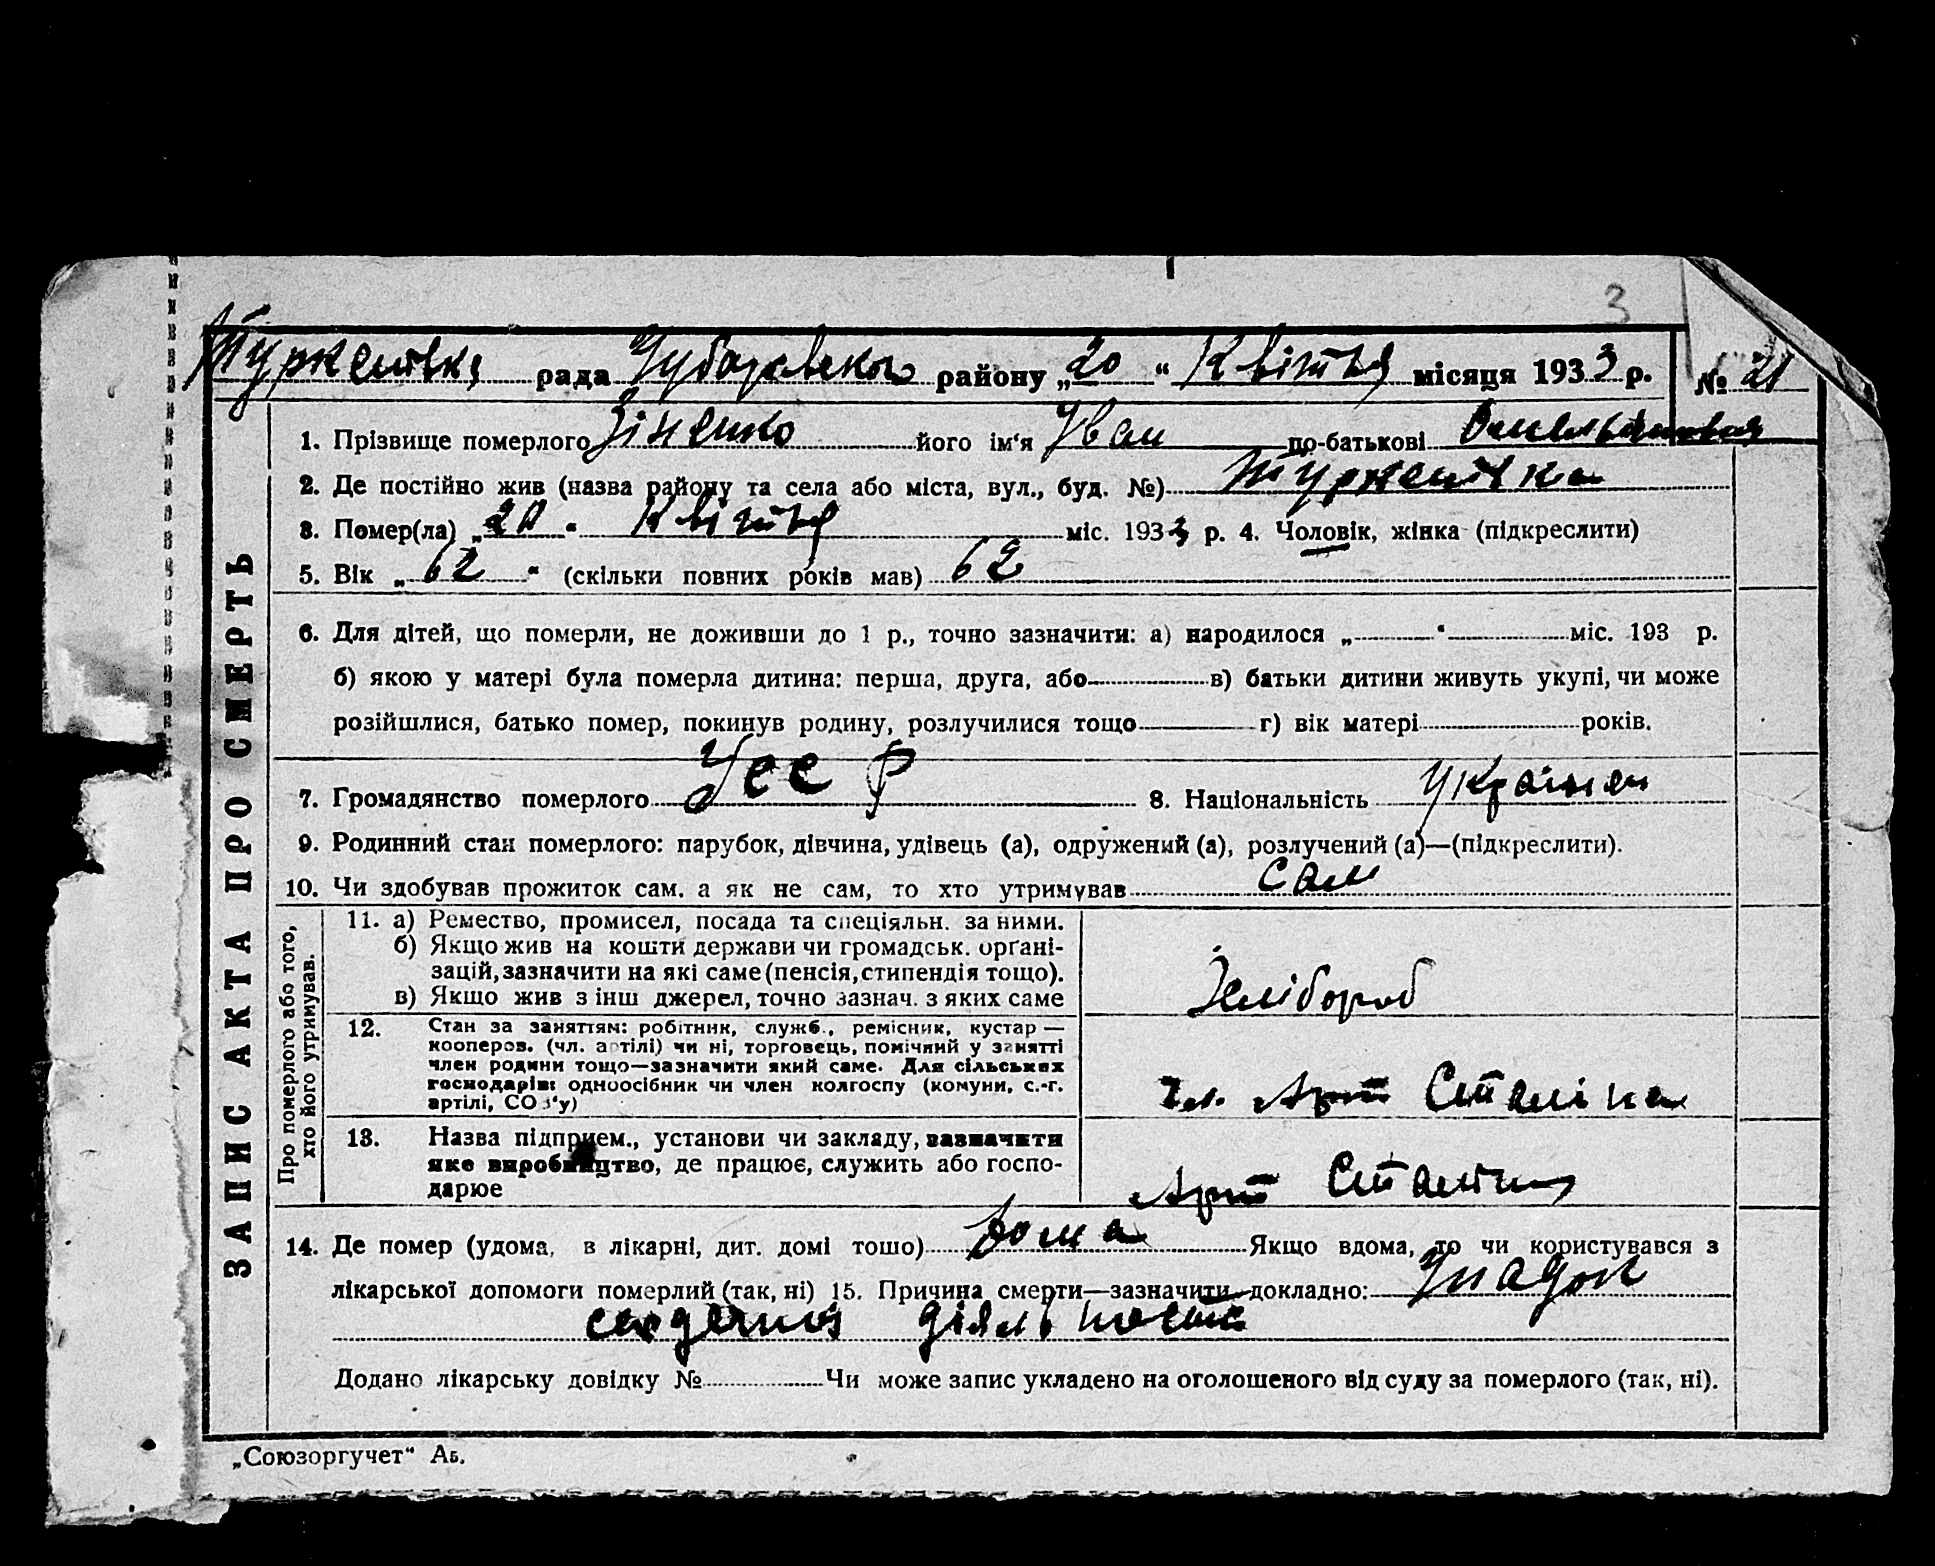 3
Туркенівка рада Чубарівського району „20“ Квітня місяця 1933 р. № 21
1. Прізвище померлого Зіненко його ім‘я Іван по-батькові
2. Де постійно жив (назва району та села або міста, вул., буд. №) Туркенівка
3. Помер(ла) „20“ Квітня міс. 1933 р. 4. Чоловік, жінка (підкреслити)
5. Вік „62“ (скільки повних років мав) 62
6. Для дітей, що померли, не доживши до 1 р., точно зазначити: а) народилося „ “ міс. 193 р.
б) якою у матері була померла дитина: перша, друга, або в) батьки дитини живуть укупі, чи може
розійшлися, батько помер, покинув родину, розлучилися тощо г) вік матері років.
7. Громадянство померлого УССР 8. Національність Українец
9. Родинний стан померлого: парубок, дівчина, удівець (а), одружений (а), розлучений (а)—(підкреслити).
10. Чи здобував прожиток сам. а як не сам, то хто утримував сам
Про померлого або того,
хто його утримував.
11. а) Ремество, промисел, посада та спеціяльн. за ними.
б) Якщо жив на кошти держави чи громадськ. орґані-
зацій, зазначити на які саме (пенсія, стипендія тощо).
в) Якщо жив з інш джерел, точно зазнач. з яких саме
Хлібороб
12. Стан за заняттям: робітник, служб., ремісник, кустар —
кооперов. (чл. артілі) чи ні, торговець, помічний у занятті
член родини тощо—зазначити який саме. Для сільських
господарів: одноосібник чи член колгоспу (комуни, с.-г.
артілі, СОЗ‘у)
Чл. Арт Сталіна
13. Назва підприєм., установи чи закладу, зазначити
яке виробництво, де працює, служить або госпо-
дарює
Арт Сталіна
14. Де помер (удома, в лікарні, дит. домі тошо) Дома Якщо вдома, то чи користувався з
лікарської допомоги померлий (так, ні) 15. Причина смерти—зазначити докладно: Упадок
сердечної діяльности
Додано лікарську довідку № Чи може запис укладено на оголошеного від суду за померлого (так, ні).
ЗАПИС АКТА ПРО СМЕРТЬ
„Союзоргучет“ Аь.